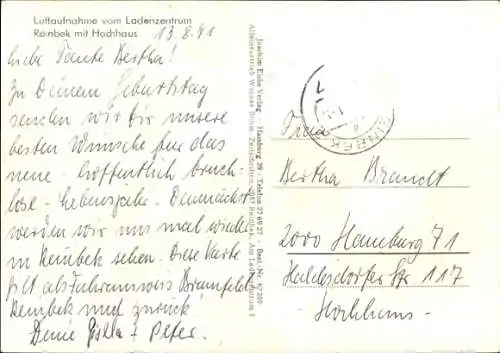 Luftaufnahme vom Ladenzentrum
Reinbek mit Hochhaus
13.8.71
Liebe Tante Bertha!
Zu Deinem Geburtstag
senden wir Dir unsere
besten Wünsche für das
neue - hoffentlich bruch-
lose - Lebensjahr. Demnächst
werden wir uns mal wieder
in Reinbek sehen. Diese Karte
gilt als Fahrausweis Bramfeld
Reinbek und zurück!
Deine + Peter.
Joachim Eicke Verlag - Hamburg 39 - Telefon 27 69 27 - Best.-Nr. 67 200
Alleinvertrieb Werner Böhm, Zeitschriften, 2057 Reinbek, Am Ladenzentrum 1
REINBEK
Frau
Bertha Brandt
2000 Hamburg 71
Str 117
- Hochhaus -